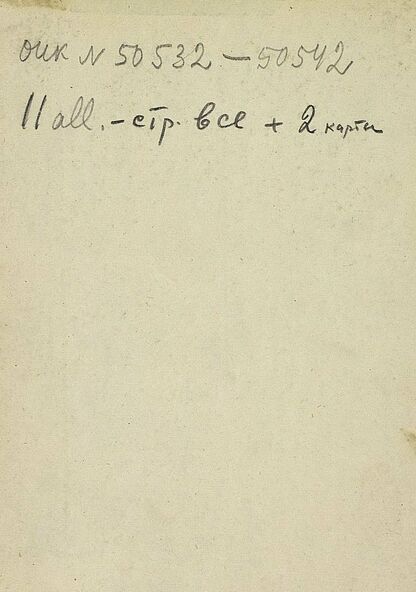 оик N 50532 — 50542
11 all. - стр. все + 2 карты